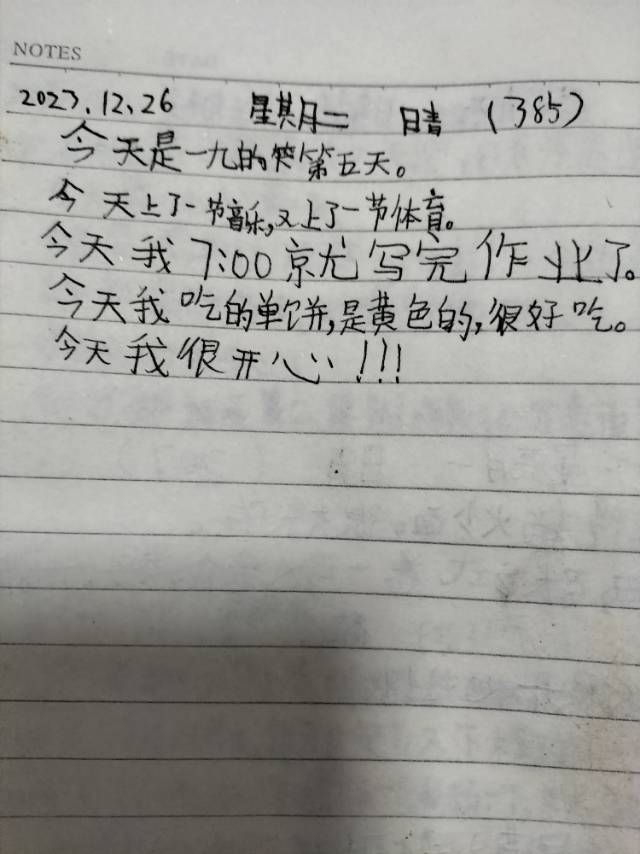 NOTES
2023.12.26 星期二 晴 (385)
今天是一九的第五天。
今天上了一节音乐,又上了一节体育。
今天我7:00就写完作业了。
今天我吃的单饼,是黄色的,很好吃。
今天我很开心!!!